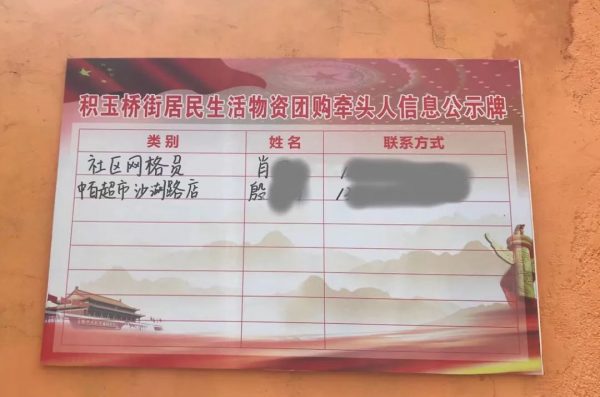 积玉桥街居民生活物资团购牵头人信息公示牌
类别 姓名 联系方式
社区网格员 肖 1
中百超市沙湖路店 殷 1